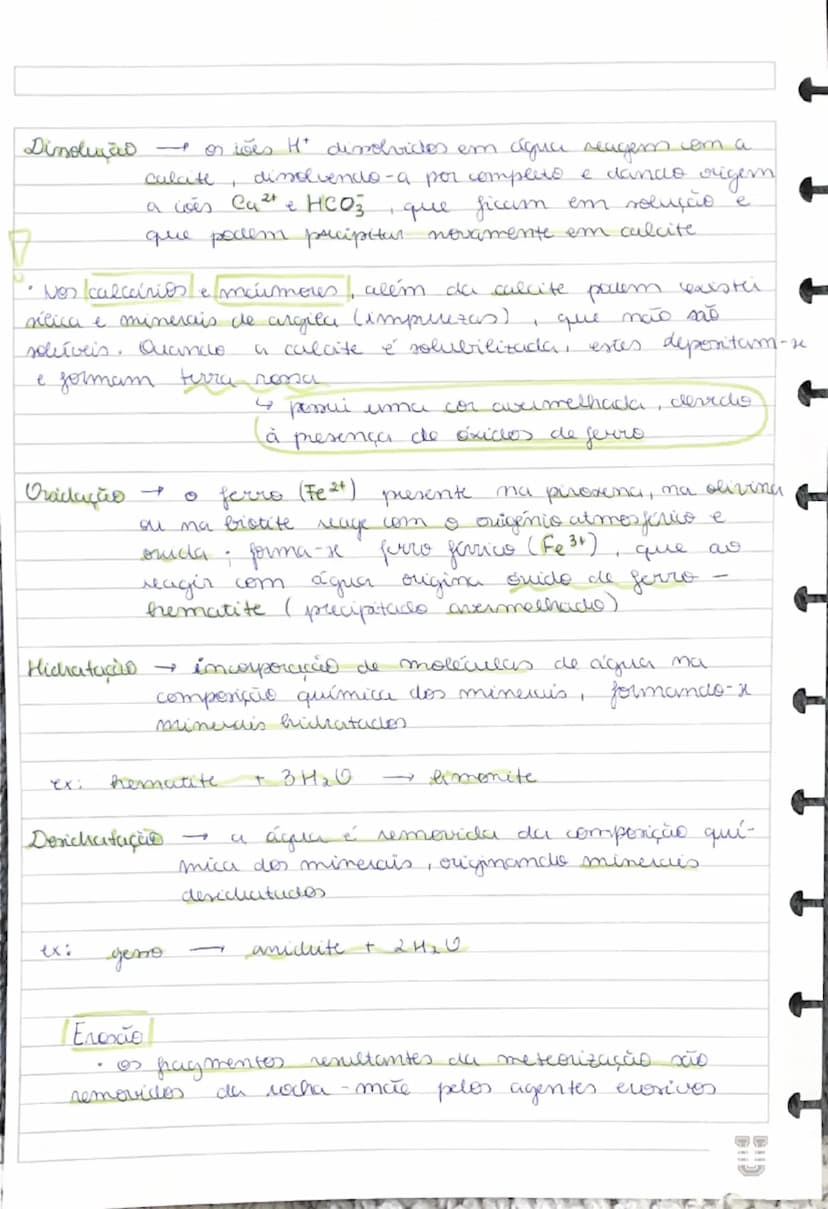 Dissolução → os iões H⁺ dissolvidos em água reagem com a
calcite, dissolvendo-a por completo e dando origem
a iões Ca²⁺ e HCO₃⁻, que ficam em solução e
que podem precipitar novamente em calcite
· Nos calcários e mármores, além da calcite podem existir
sílica e minerais de argila (impurezas), que não são
solúveis. Quando a calcite é solubilizada, estes depositam-se
e formam terra rossa
↳ possui uma cor avermelhada, devido
à presença de óxidos de ferro
Oxidação → o ferro (Fe²⁺) presente na piroxena, na olivina
ou na biotite reage com o oxigénio atmosférico e
oxida; forma-se ferro férrico (Fe³⁺), que ao
reagir com água origina óxido de ferro -
hematite (precipitado avermelhado)
Hidratação → incorporação de moléculas de água na
composição química dos minerais, formando-se
minerais hidratados
ex: hematite + 3H₂O → limonite
Desidratação → a água é removida da composição quí-
mica dos minerais, originando minerais
desidratados
ex: gesso → anidrite + 2H₂O
Erosão
· os fragmentos resultantes da meteorização são
removidos da rocha-mãe pelos agentes erosivos